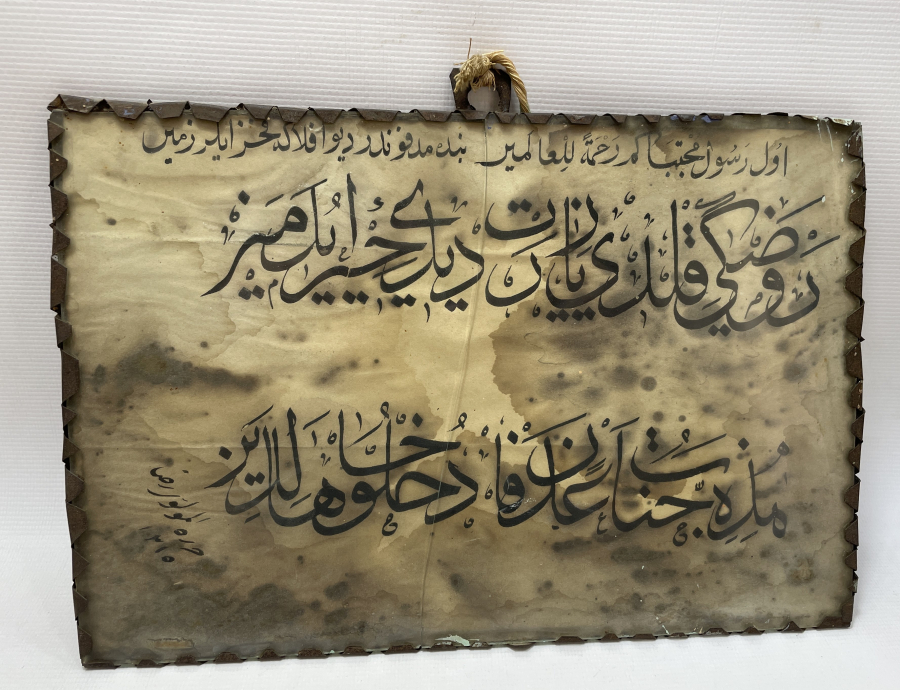 اول رسول مجتبا كم رحمة للعالمين بنده مدفوندر ديو افلاكه فخر ايلر زمين
روضكي قلدي زيارت ديدي جبرايل امين
هذه جنات عدن فادخلوها خالدين